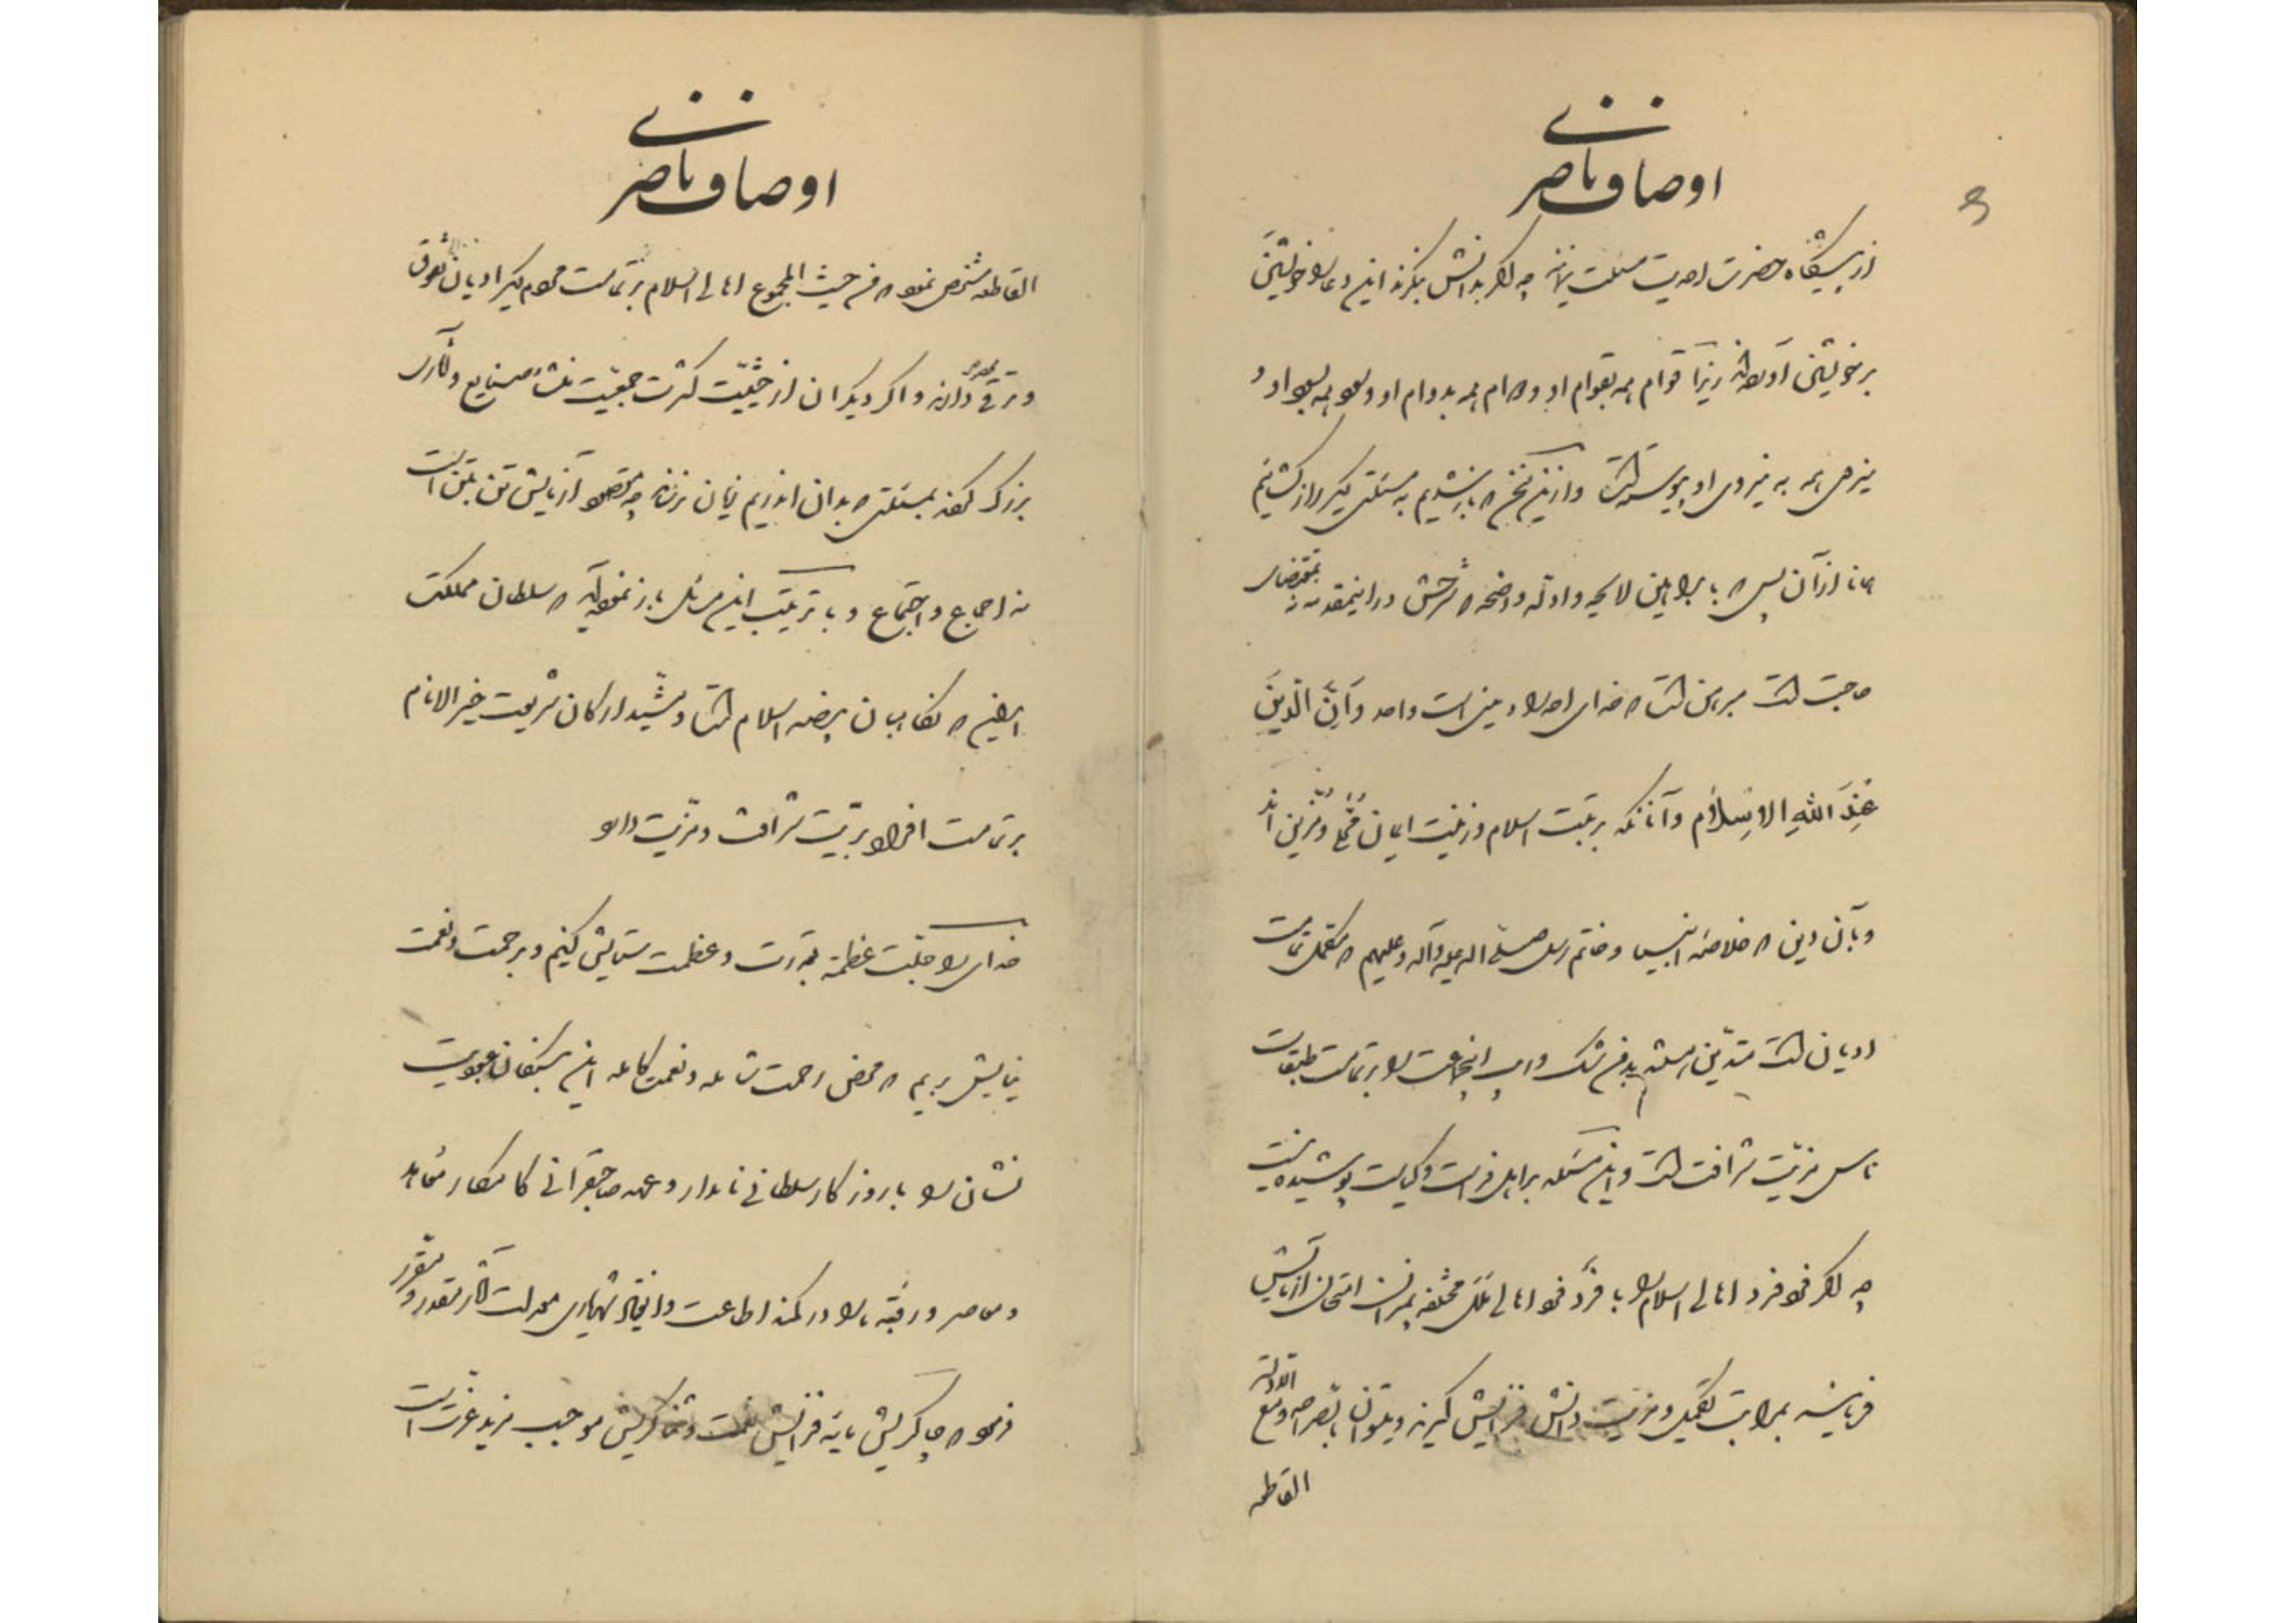 اوصاف ناصری
از پیشگاه حضرت احدیت مسئلت نمایند چه اگر بدانش بنگرند این دعا را خویشتن
بر خویشتن آورده‌اند زیرا قوام همه بقوام او و دوام همه بدوام او و بود همه ببود او و
نیروی همه به نیروی او پیوسته است و ازین سخن که باز شدیم به مسئلتی دیگر راز کشائیم
همانا از آن پس که با براهین لایحه و ادله واضحه که شرحش در اینمقدمه نه بمقتضای
حاجت است مبرهن است که خدای احد را دینی است واحد و اِنَّ الدّینَ
عِندَ اللهِ الاِسلامُ و آنانکه برتبت اسلام و زینت ایمان محلی و مزین اند
و بآن دین که خلاصه انبیا و خاتم رسل صلی الله علیه وآله وعلیهم که مکمل تمامت
ادیان است متدین استند بدون شک و ریب اینجماعت را بر تمامت طبقات
ناس مزیت شرافت است و این مسئله بر اهل فراست و کیاست پوشیده نیست
چه اگر فرد فرد اهالی اسلام را با فرد فرد اهالی ملل مختلفه بمیزان امتحان آزمایش
فرمایند بمراتب تکمیل و مزیت دانش فزایش گیرند و بتواتر باصره و مع الادلة
القاطعه
اوصاف ناصری
القاطعه مشخص نموده که من حیث المجموع اهالی اسلام بر تمامت مردم دیگر ادیان تفوق
و ترقی دارند و اگر دیگران از حیثیت کثرت جمعیت منشأ صنایع و آثاری
بزرگ گردند بمسئلتی که بدان اندریم زیان نرساند چه مقصود آزمایش تن بتن است
نه اجماع و اجتماع و با ترتیب این مسائل باز نموده آید که سلطان مملکت
ایران که نگاهبان بیضه اسلام است و مشید ارکان شریعت خیر الانام
بر تمامت افراد بریت شرافت و مزیت دارد
خدای را جلّت عظمته بقدرت و عظمت ستایش کنیم و برحمت و نعمت
نیایش بریم که محض رحمت شامله و نعمت کامله این بندگان عبودیت
نشان را با روزگار سلطانی نامدار و عهد صاحبقرانی کامکار معاهد
و معاصر و رقبه ما را در کمند اطاعت و انقیاد شهریاری معدلت آثار مقدر و مقرر
فرمود که چاکریش مایه فزایش نعمت و شکرش موجب مزید عزت است